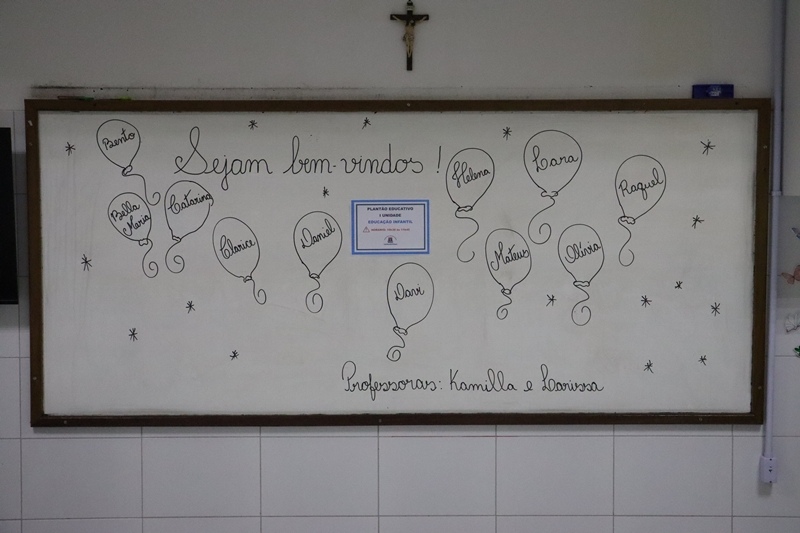 Sejam bem-vindos!
Bento
Bella
Maria
Catarina
Clarice
Daniel
PLANTÃO EDUCATIVO
I UNIDADE
EDUCAÇÃO INFANTIL
Davi
Helena
Lara
Raquel
Mateus
Olívia
Professoras: Kamilla e Larissa